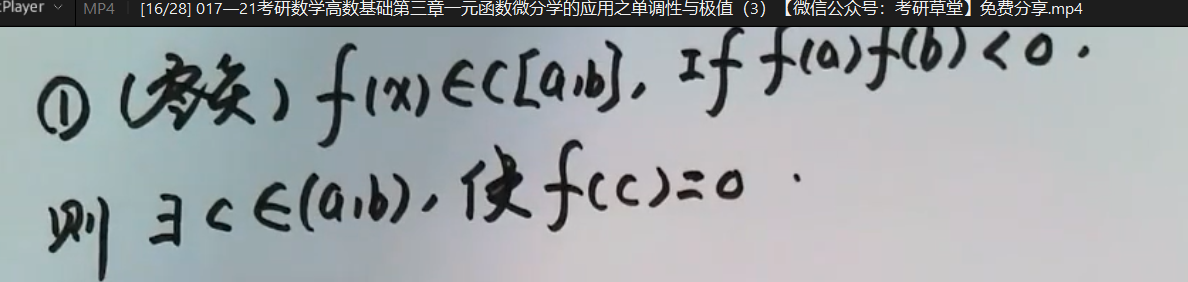 Player MP4 [16/28] 017—21考研数学高数基础第三章一元函数微分学的应用之单调性与极值（3）【微信公众号：考研草堂】免费分享.mp4
① (零点) f(x)∈C[a,b], If f(a)f(b)<0.
则 ∃ c∈(a,b), 使 f(c)=0.